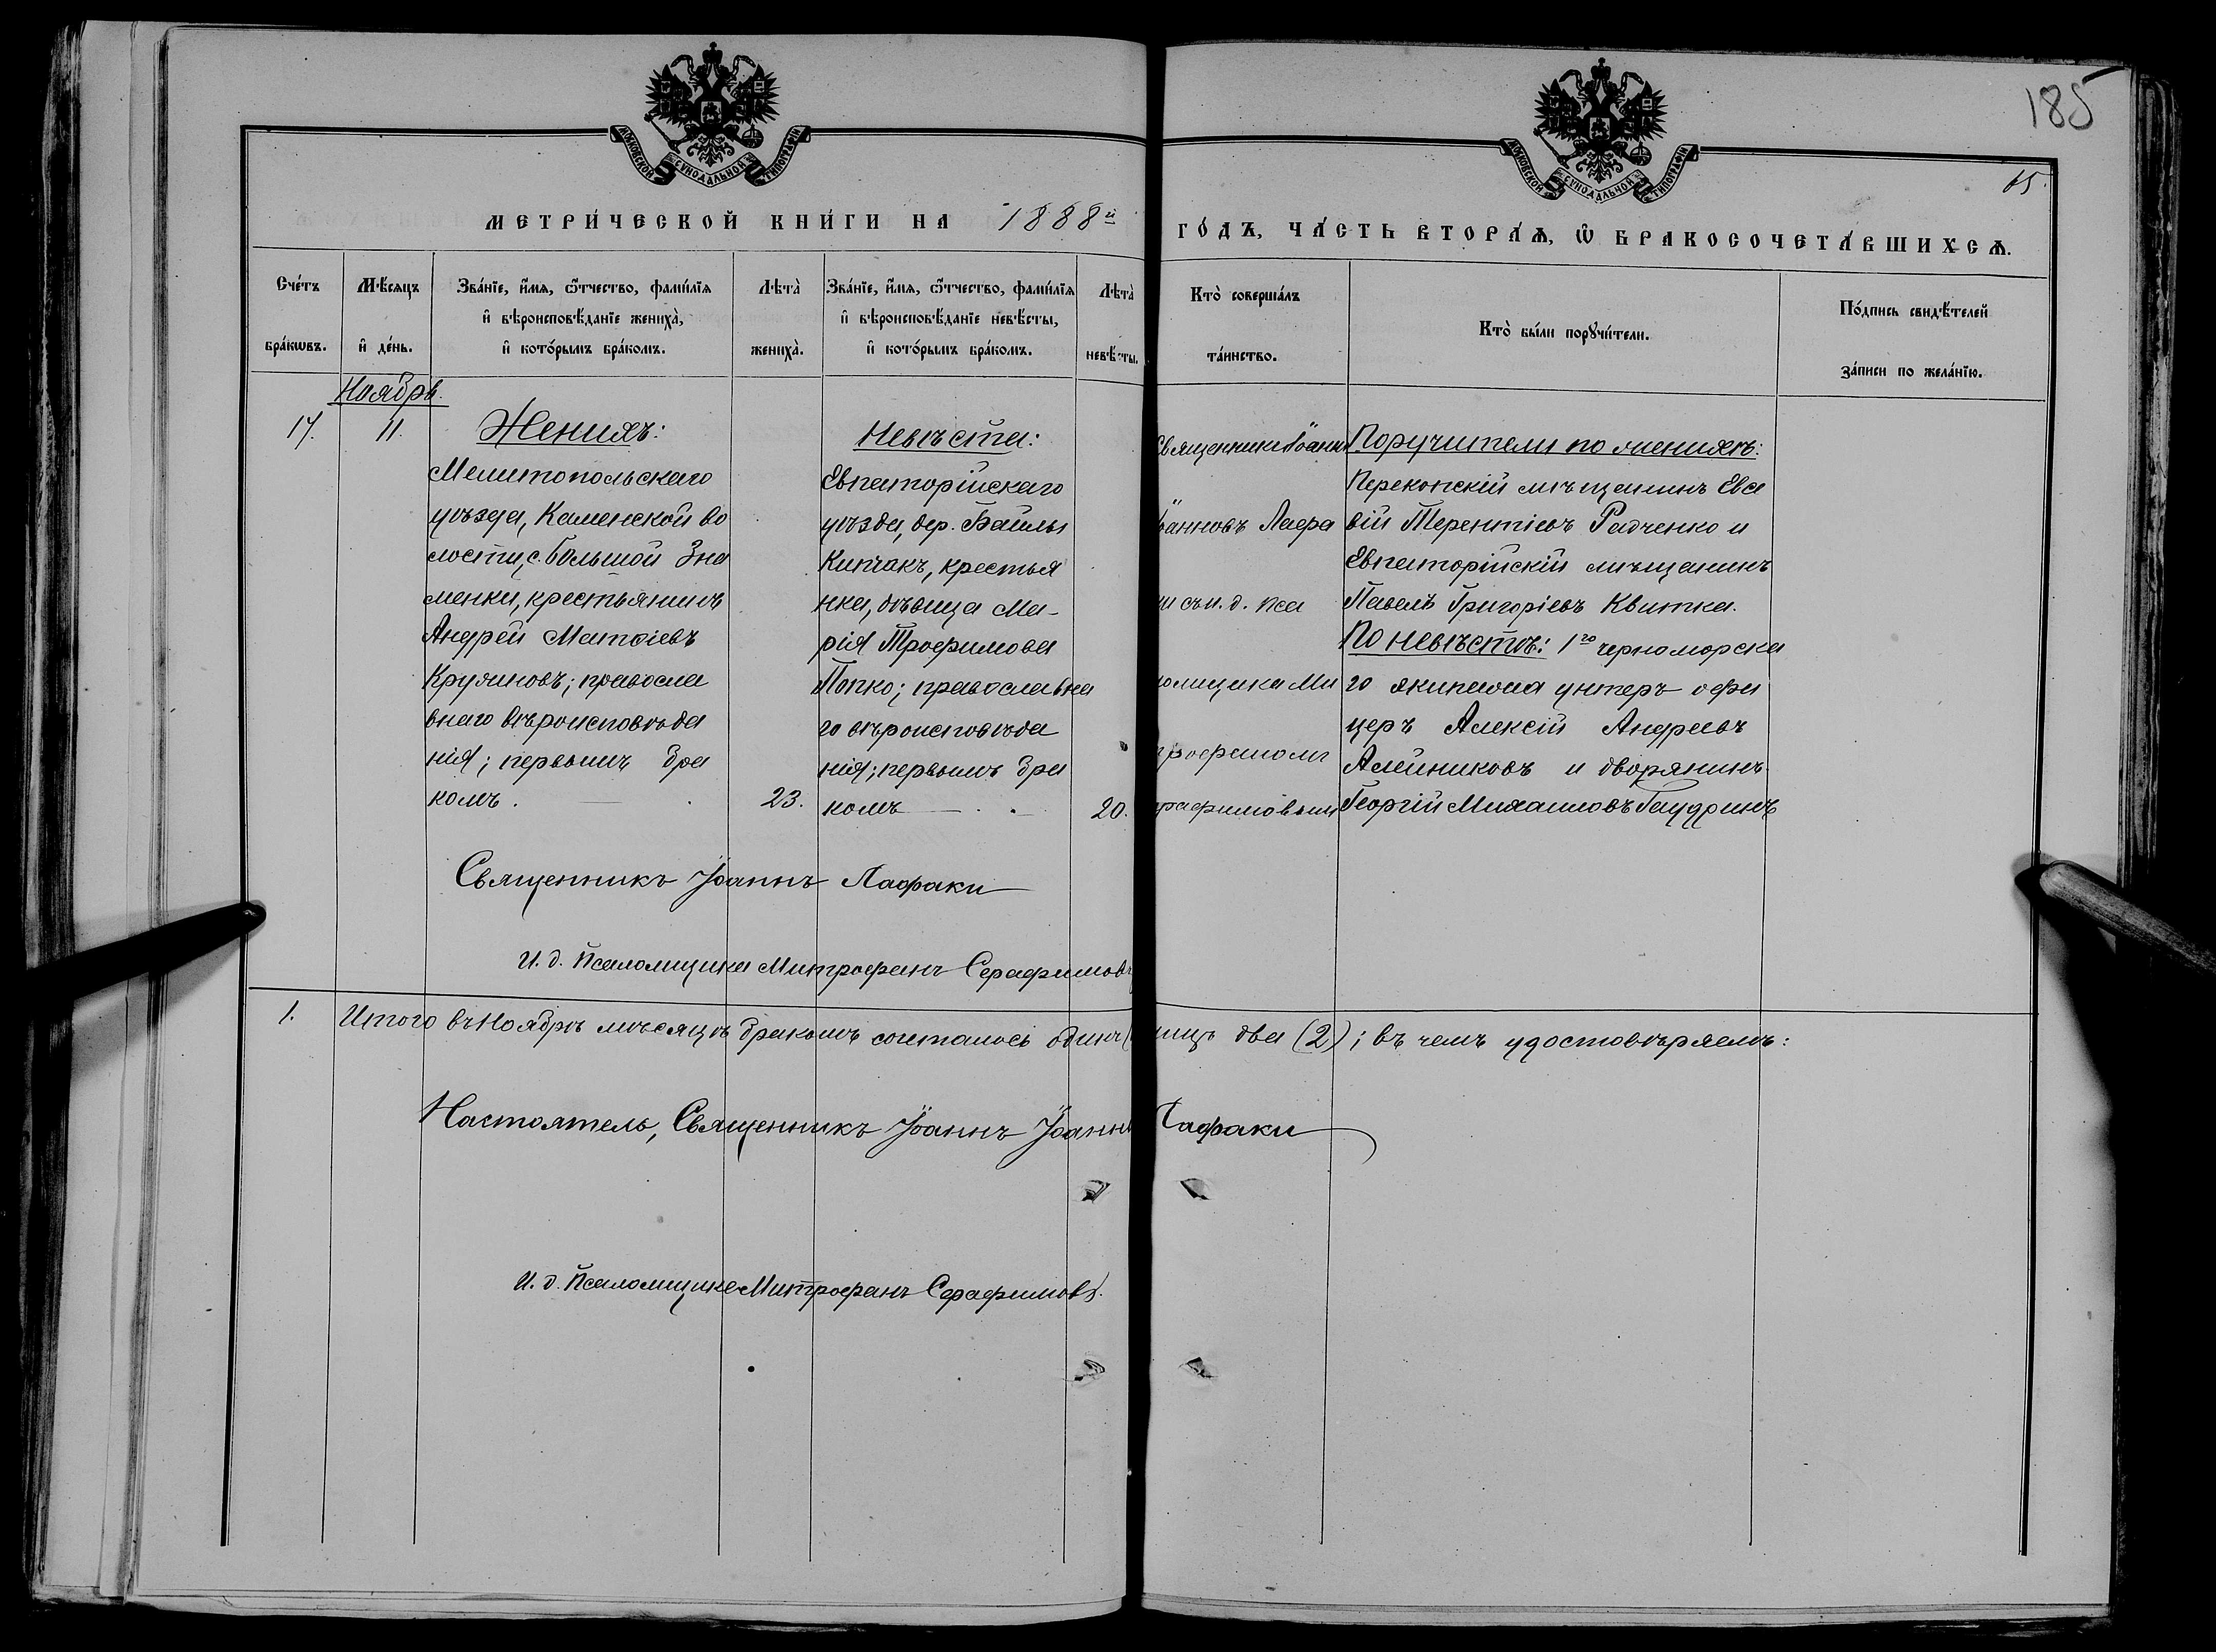 185
65.
МОСКОВСКОЙ СѴНОДАЛЬНОЙ ТИПОГРАФІИ
МОСКОВСКОЙ СѴНОДАЛЬНОЙ ТИПОГРАФІИ
МЕТРИ́ЧЕСКОЙ КНИ́ГИ НА 1888й
ГО́ДЪ, ЧА́СТЬ ВТОРА́Ѧ, Ѡ҆ БРАКОСОЧЕТА́ВШИХСѦ.
Сче́тъ
бра́кѡвъ.
Мѣ́сяцъ
и҆ де́нь.
Зва́нїе, и҆́мя, ѻ҆́тчество, фами́лїя
и҆ вѣроисповѣ́данїе жениха̀,
и҆ кото́рымъ бра́комъ.
Лѣта̀
жениха̀.
Зва́нїе, и҆́мя, ѻ҆́тчество, фами́лїя
и҆ вѣроисповѣ́данїе невѣ́сты,
и҆ кото́рымъ бра́комъ.
Лѣта̀
невѣ́сты.
Кто̀ соверша́лъ
та́инство.
Кто̀ бы́ли порꙋчи́тели.
По́дпись свидѣ́телей
за́писи по жела́нїю.
Ноябрь.
17.
11.
Женихъ:
Мелитопольскаго
уѣзда, Каменской во
лости, с. Большой Зна
менки, крестьянинъ
Андрей Матѳіевъ
Кружиновъ; правосла
внаго вѣроисповѣда
нія; первымъ бра
комъ.
23.
Невѣста:
Евпаторійскаго
уѣзда, дер. Байлы
Кипчакъ, крестья
нка, дѣвица Ма-
рія Трофимова
Попко; православна
го вѣроисповѣда
нія; первымъ бра
комъ
20.
Священникъ Іоаннъ
Іоанновъ Лафа
ки съ и. д. пса
ломщика Ми
трофаномъ
Серафимовымъ
Поручители по женихѣ:
Перекопскій мѣщанинъ Евса
вій Терентіевъ Радченко и
Евпаторійскій мѣщанинъ
Павелъ Григоріевъ Квитка.
По невѣстѣ: 1го черноморска
го экипажа унтеръ офи
церъ Алексій Андреевъ
Алейниковъ и дворянинъ
Георгій Михаиловъ Гаудринъ
Священникъ Іоаннъ Лафаки
И. д. Псаломщика Митрофанъ Серафимовъ
1.
Итого въ Ноябрѣ мѣсяцѣ бракомъ сочеталось одинъ (
лицъ два (2); въ чемъ удостовѣряемъ:
Настоятель, Священникъ Іоаннъ Іоанн Лафаки
И. д. Псаломщика Митрофанъ Серафимовъ.